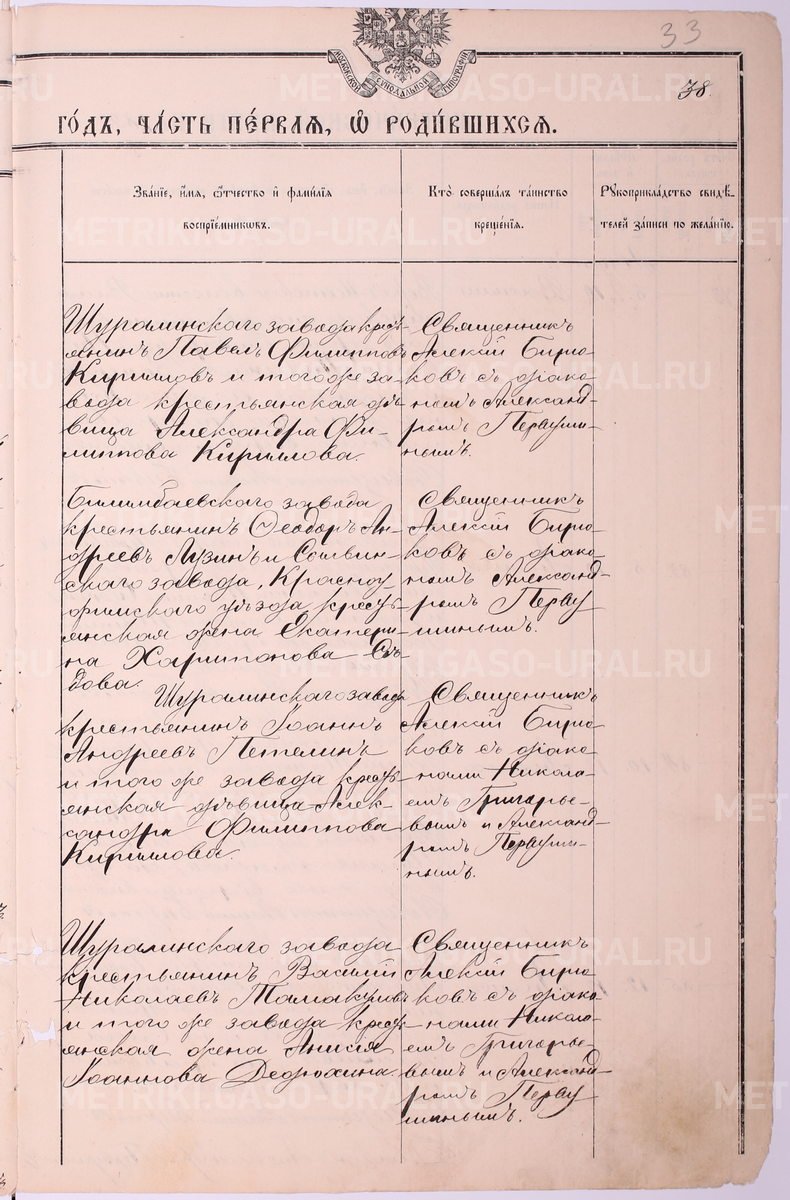 33
38.
МОСКОВСКОЙ СѴНОДАЛЬНОЙ ТИПОГРАФІИ
ГО́ДЪ, ЧА́СТЬ ПЕ́РВАЯ, Ѿ РОДИ́ВШИХСЯ.
Зва́ніе, и҆́мя, ѻ҆́тчество и҆ фами́лія
воспріе́мниковъ.
Кто̀ соверша́лъ та́инство
креще́нія.
Рꙋкоприкла́дство свидѣ́-
телей за́писи по жела́нію.
Шуралинскаго завода кресть-
янинъ Павелъ Филипповъ
Кирилловъ и того же за-
вода крестьянская дѣ-
вица Александра Фи-
липпова Кириллова.
Священникъ
Алексій Бирю-
ковъ съ діако-
номъ Александ-
ромъ Первуши-
нымъ.
Билимбаевскаго завода
крестьянинъ Ѳеодоръ Ан-
дреевъ Лузинъ и Сылвин-
скаго завода, Красноу
фимскаго уѣзда кресть
янская жена Екатери-
на Харитонова
Священникъ
Алексій Бирю-
ковъ съ діако-
номъ Александ-
ромъ Перву
шинымъ.
Шуралинскаго завода
крестьянинъ Іоаннъ
Андреевъ Петелинъ
и того же завода кресть
янская дѣвица Алек-
сандра Филиппова
Кириллова.
Священникъ
Алексій Бирю-
ковъ съ діако-
нами Никола-
емъ Григорье-
вымъ и Александ-
ромъ Первуши-
нымъ.
Шуралинскаго завода
крестьянинъ Василій
Николаевъ
и того же завода кресть-
янская жена Анисія
Іоаннова Дедюхина.
Священникъ
Алексій Бирю
ковъ съ діако
нами Никола-
емъ Григорье-
вымъ и Александ-
ромъ Перву
шинымъ.
METRIKI.GASO-URAL.RU